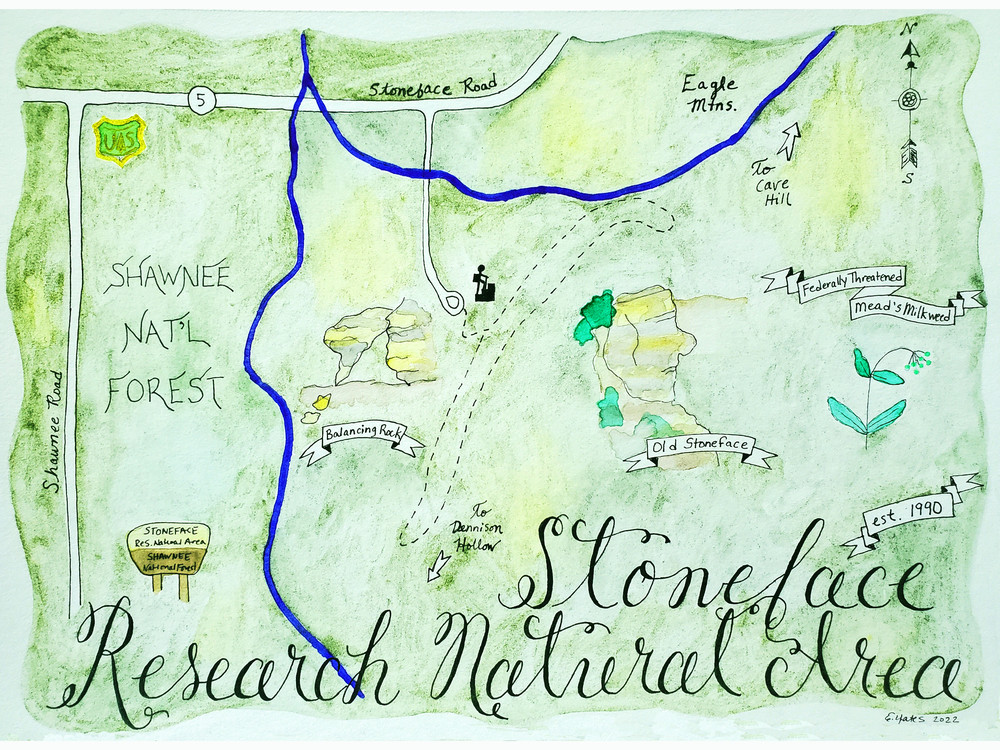 N
Stoneface Road
5
Eagle
Mtns.
UAS
To
Cave
Hill
S
SHAWNEE
NAT'L
FOREST
Federally Threatened
Mead's Milkweed
Shawnee Road
Balancing Rock
Old Stoneface
To
Dennison
Hollow
est. 1990
STONEFACE
Res. Natural Area
SHAWNEE
National Forest
Stoneface
Research Natural Area
E. Yates 2022